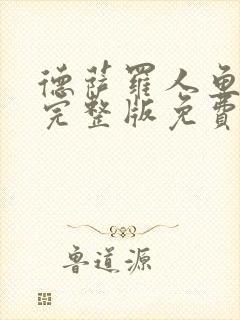 德萨罗人鱼
完整版免费
鲁道源